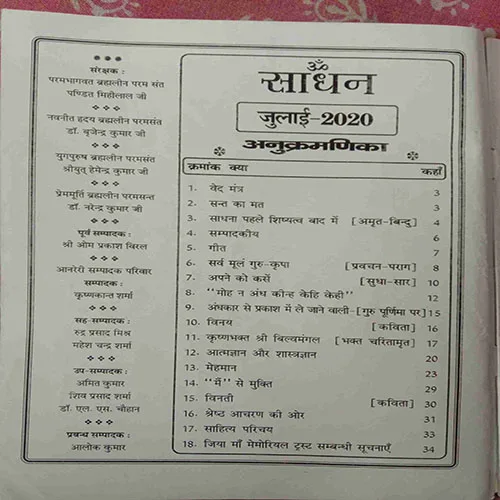 संरक्षक :
परमभागवत ब्रह्मलीन परम संत
पण्डित मिहीलाल जी
❖ ❖ ❖
नवनीत हृदय ब्रह्मलीन परमसंत
डॉ. बृजेन्द्र कुमार जी
❖ ❖ ❖
युगपुरुष ब्रह्मलीन परमसंत
श्रीयुत् हेमेन्द्र कुमार जी
❖ ❖ ❖
प्रेममूर्ति ब्रह्मलीन परमसन्त
डॉ. नरेन्द्र कुमार जी
❖ ❖ ❖
पूर्व सम्पादक :
श्री ओम प्रकाश विरल
❖ ❖ ❖
आनरेरी सम्पादक परिवार
सम्पादक :
कृष्णकान्त शर्मा
❖ ❖ ❖
सह-सम्पादक :
रुद्र प्रसाद मिश्र
महेश चन्द्र शर्मा
❖ ❖ ❖
उप-सम्पादक :
अमित कुमार
शिव प्रसाद शर्मा
डॉ. एल. एस. चौहान
❖ ❖ ❖
प्रबन्ध सम्पादक :
आलोक कुमार
ॐ
साधन
जुलाई-2020
अनुक्रमणिका
क्रमांक क्या कहाँ
1. वेद मंत्र 3
2. सन्त का मत 3
3. साधना पहले शिष्यत्व बाद में [अमृत-बिन्दु] 4
4. सम्पादकीय 6
5. गीत 7
6. सर्व मूलं गुरु-कृपा [प्रवचन-पराग] 8
7. अपने को कसें [सुधा-सार] 10
8. "मोह न अंध कीन्ह केहि केही" 12
9. अंधकार से प्रकाश में ले जाने वाली-[गुरु पूर्णिमा पर] 15
10. विनय [कविता] 16
11. कृष्णभक्त श्री बिल्वमंगल [भक्त चरितामृत] 17
12. आत्मज्ञान और शास्त्रज्ञान 20
13. मेहमान 23
14. "मैं" से मुक्ति 29
15. विनती [कविता] 30
16. श्रेष्ठ आचरण की ओर 31
17. साहित्य परिचय 33
18. जिया माँ मेमोरियल ट्रस्ट सम्बन्धी सूचनाएँ 34